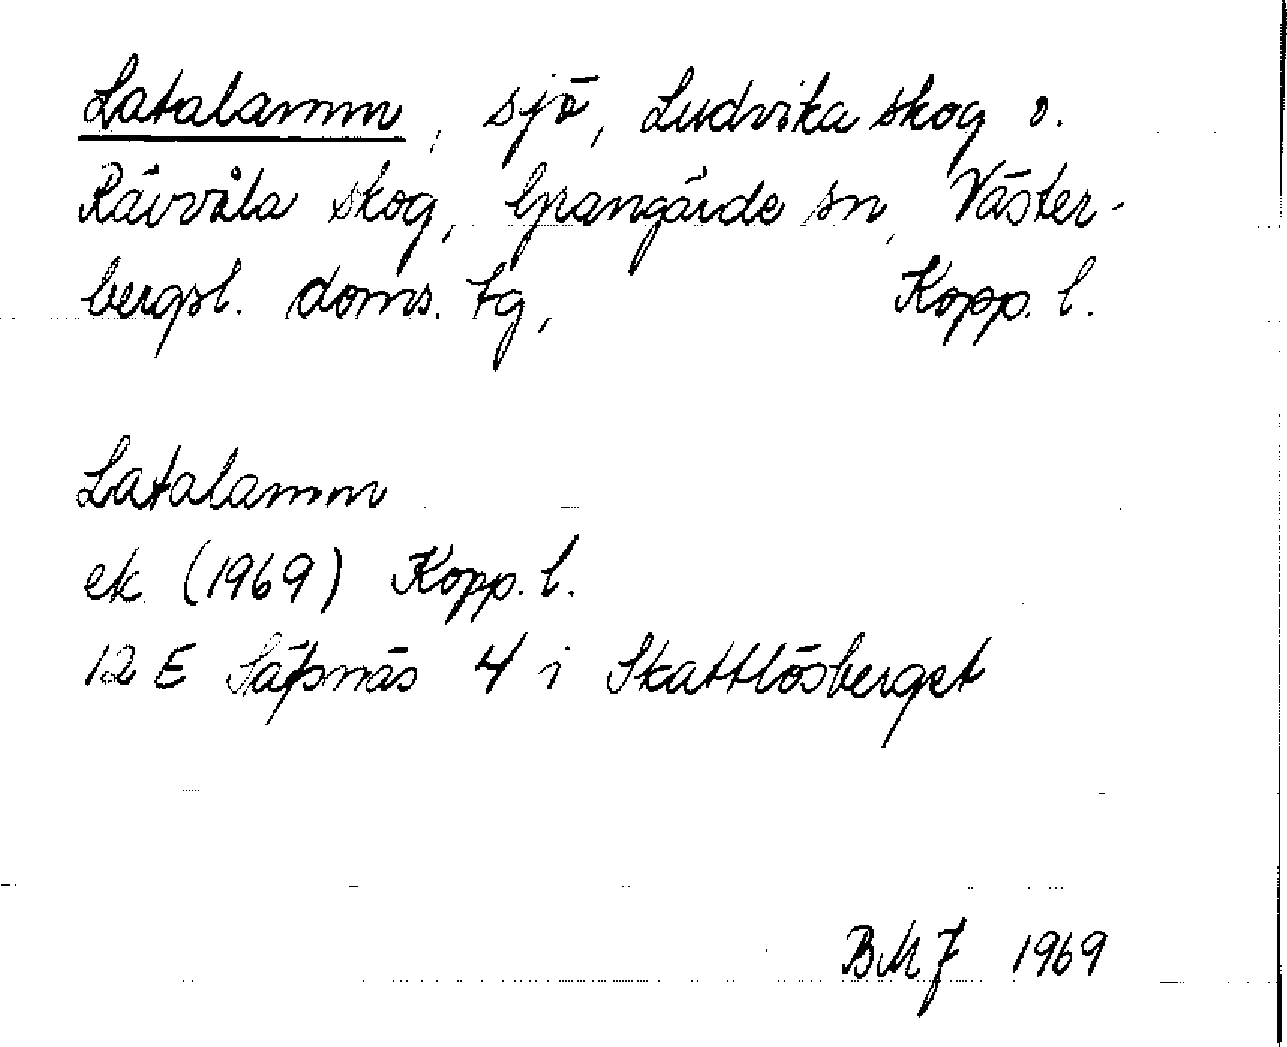 Latalamm, sjö, Ludvika skog o.
Rävvåla skog, Grangärde sn, Väster-
bergsl. doms. tg, Kopp. l.
Latalamm
ek (1969) Kopp. l.
12 E Säfsnäs 4 i Skattlösberget
BMJ 1969